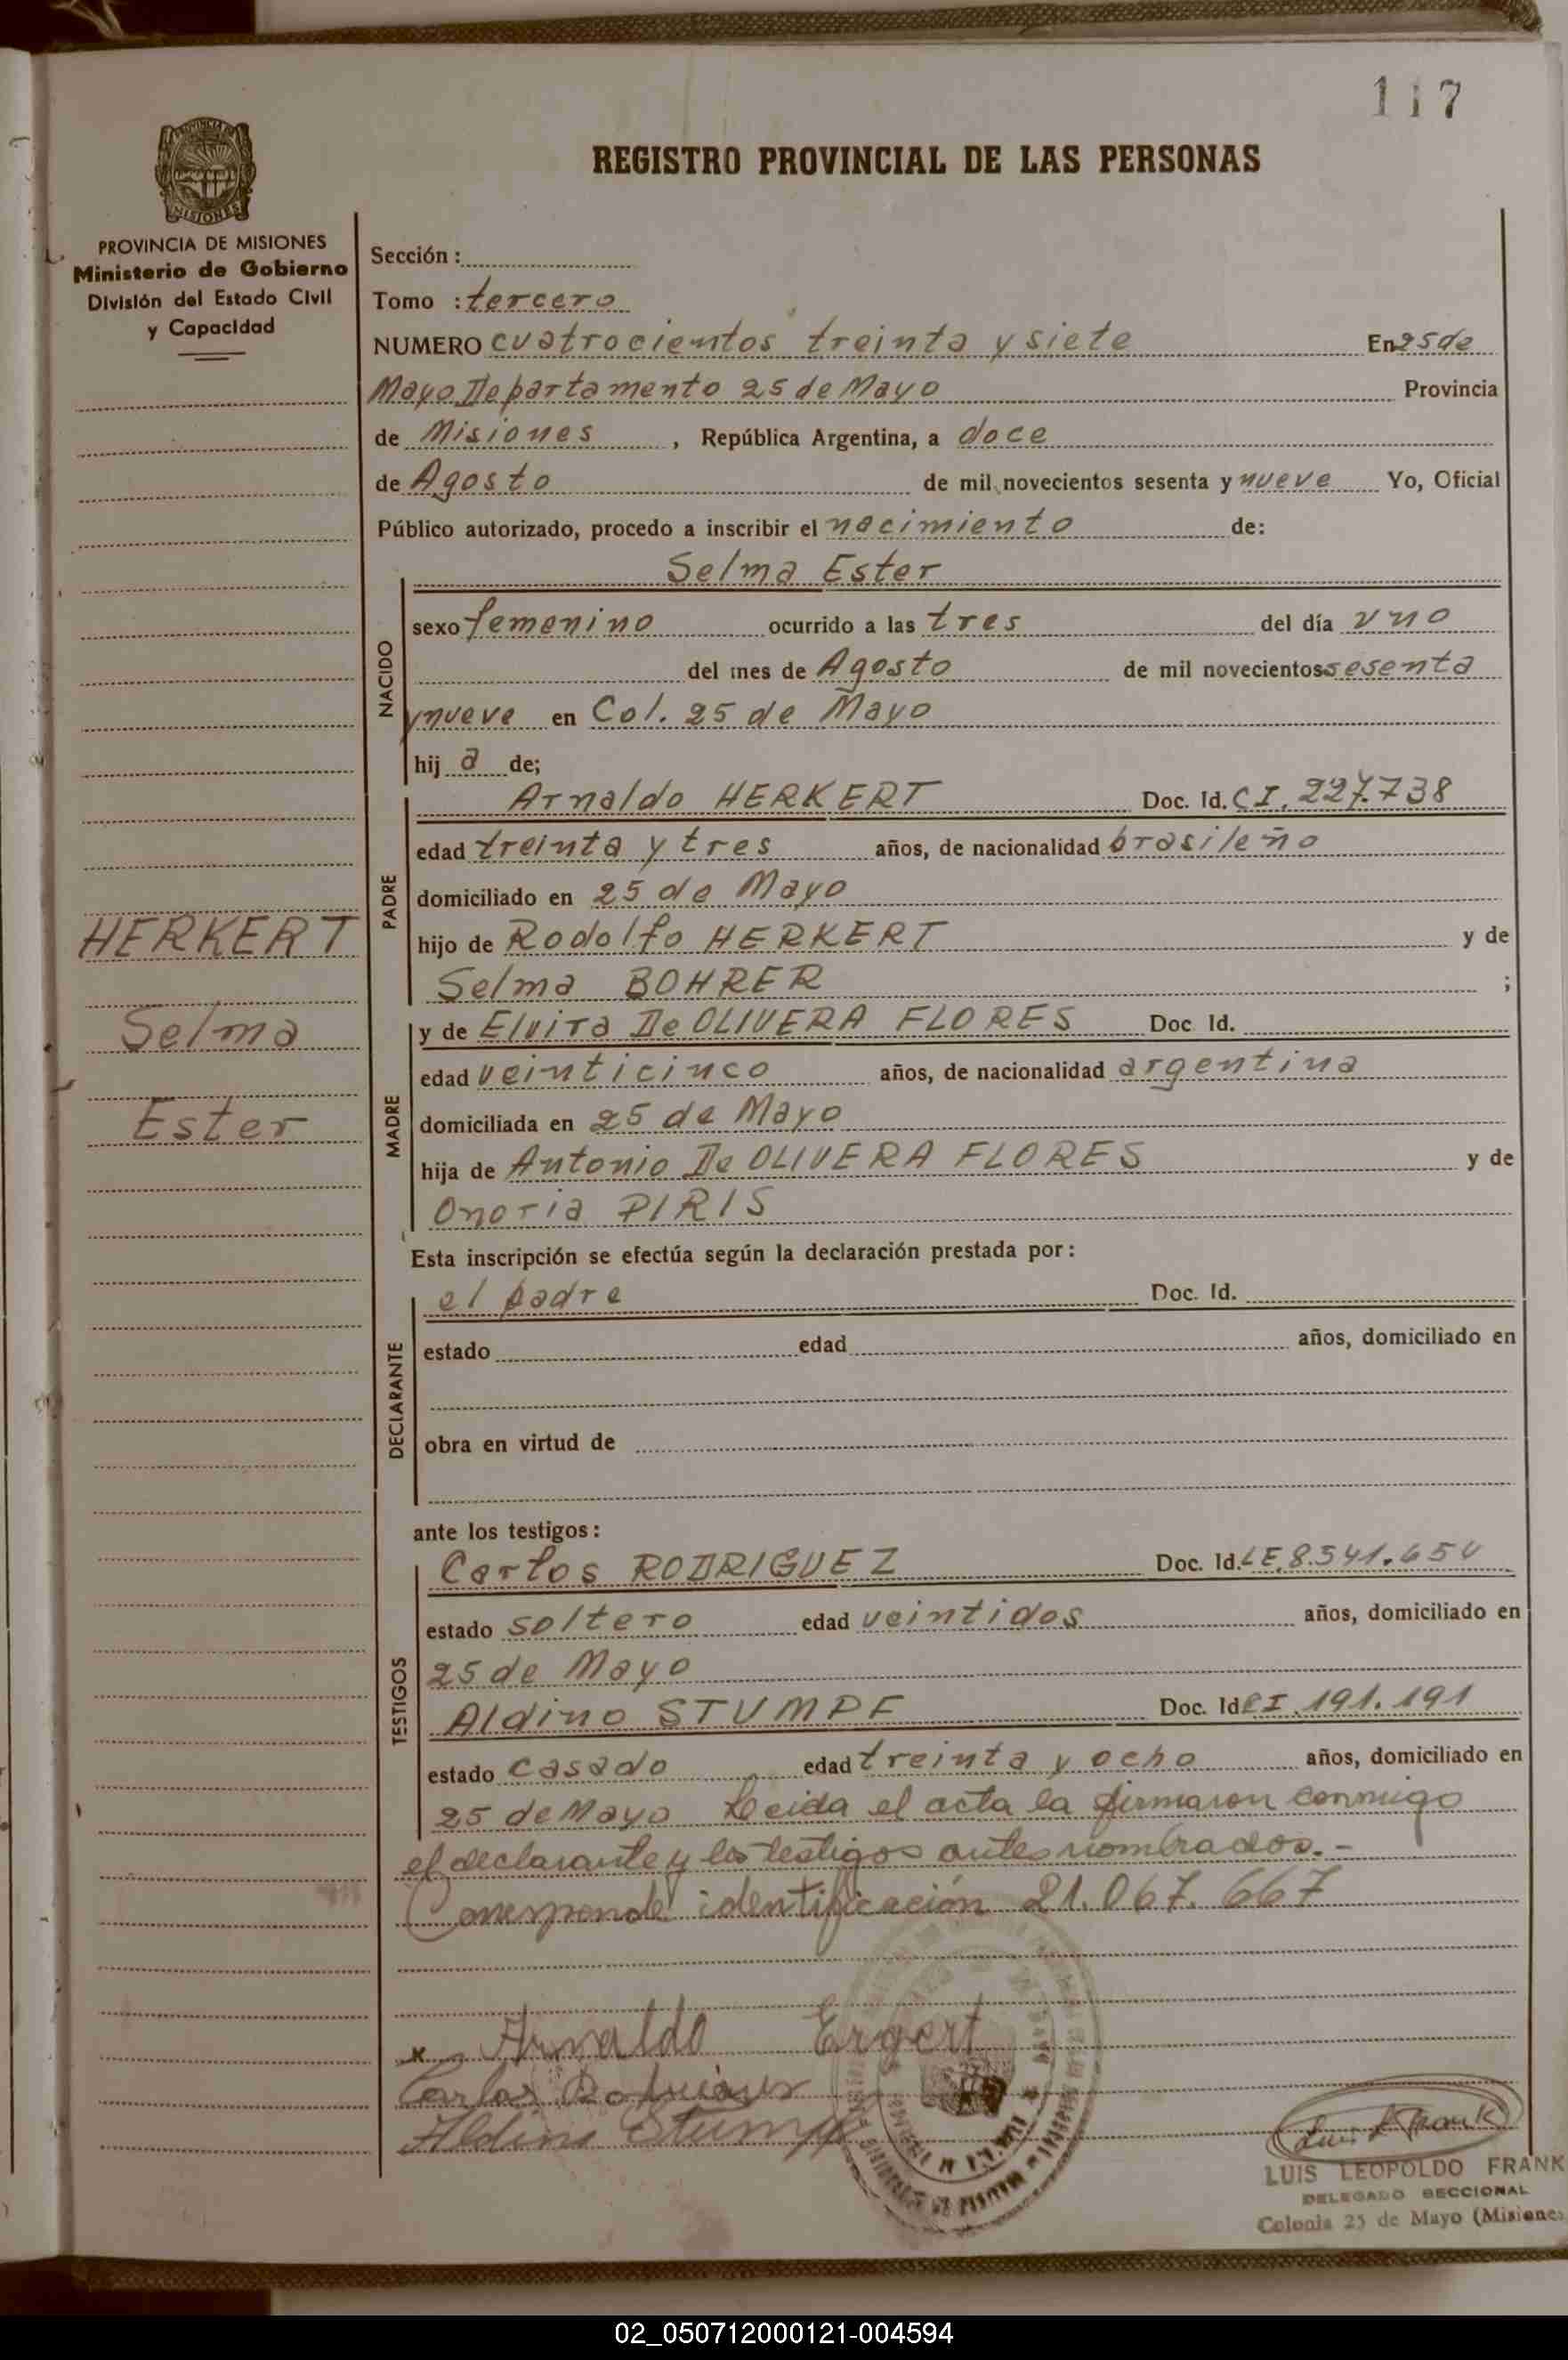 117
REGISTRO PROVINCIAL DE LAS PERSONAS
PROVINCIA DE MISIONES
MISIONES
PROVINCIA DE MISIONES
Ministerio de Gobierno
División del Estado Civil
y Capacidad
HERKERT
Selma
Ester
Sección :
Tomo : tercero
NUMERO cuatrocientos treinta y siete En 25 de
Mayo Departamento 25 de Mayo Provincia
de Misiones , República Argentina, a doce
de Agosto de mil novecientos sesenta y nueve Yo, Oficial
Público autorizado, procedo a inscribir el nacimiento de:
NACIDO
Selma Ester
sexo femenino ocurrido a las tres del día uno
del mes de Agosto de mil novecientos sesenta
y nueve en Col. 25 de Mayo
hij a de;
PADRE
Arnaldo HERKERT Doc. Id. CI. 227.738
edad treinta y tres años, de nacionalidad brasileño
domiciliado en 25 de Mayo
hijo de Rodolfo HERKERT y de
Selma BOHRER ;
MADRE
y de Elvira De OLIVERA FLORES Doc Id.
edad veinticinco años, de nacionalidad argentina
domiciliada en 25 de Mayo
hija de Antonio De OLIVERA FLORES y de
Onoria PIRIS
Esta inscripción se efectúa según la declaración prestada por :
DECLARANTE
el padre Doc. Id.
estado edad años, domiciliado en
obra en virtud de
ante los testigos :
TESTIGOS
Carlos RODRIGUEZ Doc. Id. LE. 8.541.654
estado soltero edad veintidos años, domiciliado en
25 de Mayo
Aldino STUMPF Doc. Id CI. 191.191
estado casado edad treinta y ocho años, domiciliado en
25 de Mayo Leida el acta la firmaron conmigo
el declarante y los testigos antes nombrados.-
Corresponde identificación 21.067.667
x Arnaldo Ergert
Carlos Rodriguez
Aldino Stumpf
Luis L Frank
LUIS LEOPOLDO FRANK
DELEGADO SECCIONAL
Colonia 25 de Mayo (Misiones
02_050712000121-004594